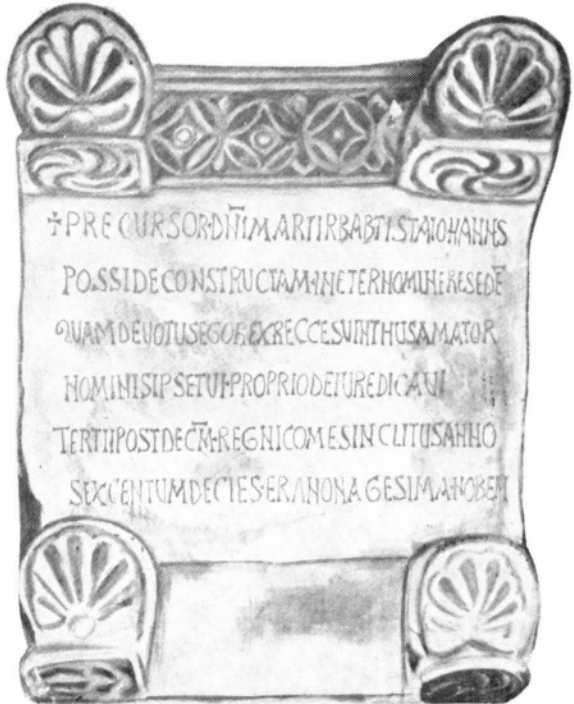 +PRECURSOR·DN̅I MARTIR BABTISTA IOHANNS
POSSIDE CONSTRUCTAM·IN ETERNO MUNERE SEDE̅
QUAM DEVOTUS EGO REX RECCESVINTHUS AMATOR
NOMINIS IPSE TUI·PROPRIO DE IURE DICAVI
TERTII POST DECM̅·REGNI COMES INCLITUS ANNO
SEXCENTUM DECIES·ERA NONAGESIMA NOBEM